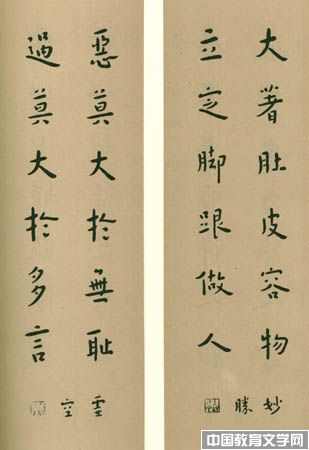 大著肚皮容物
立定脚跟做人
妙
勝
惡莫大於無耻
過莫大於多言
空
中国教育文学网